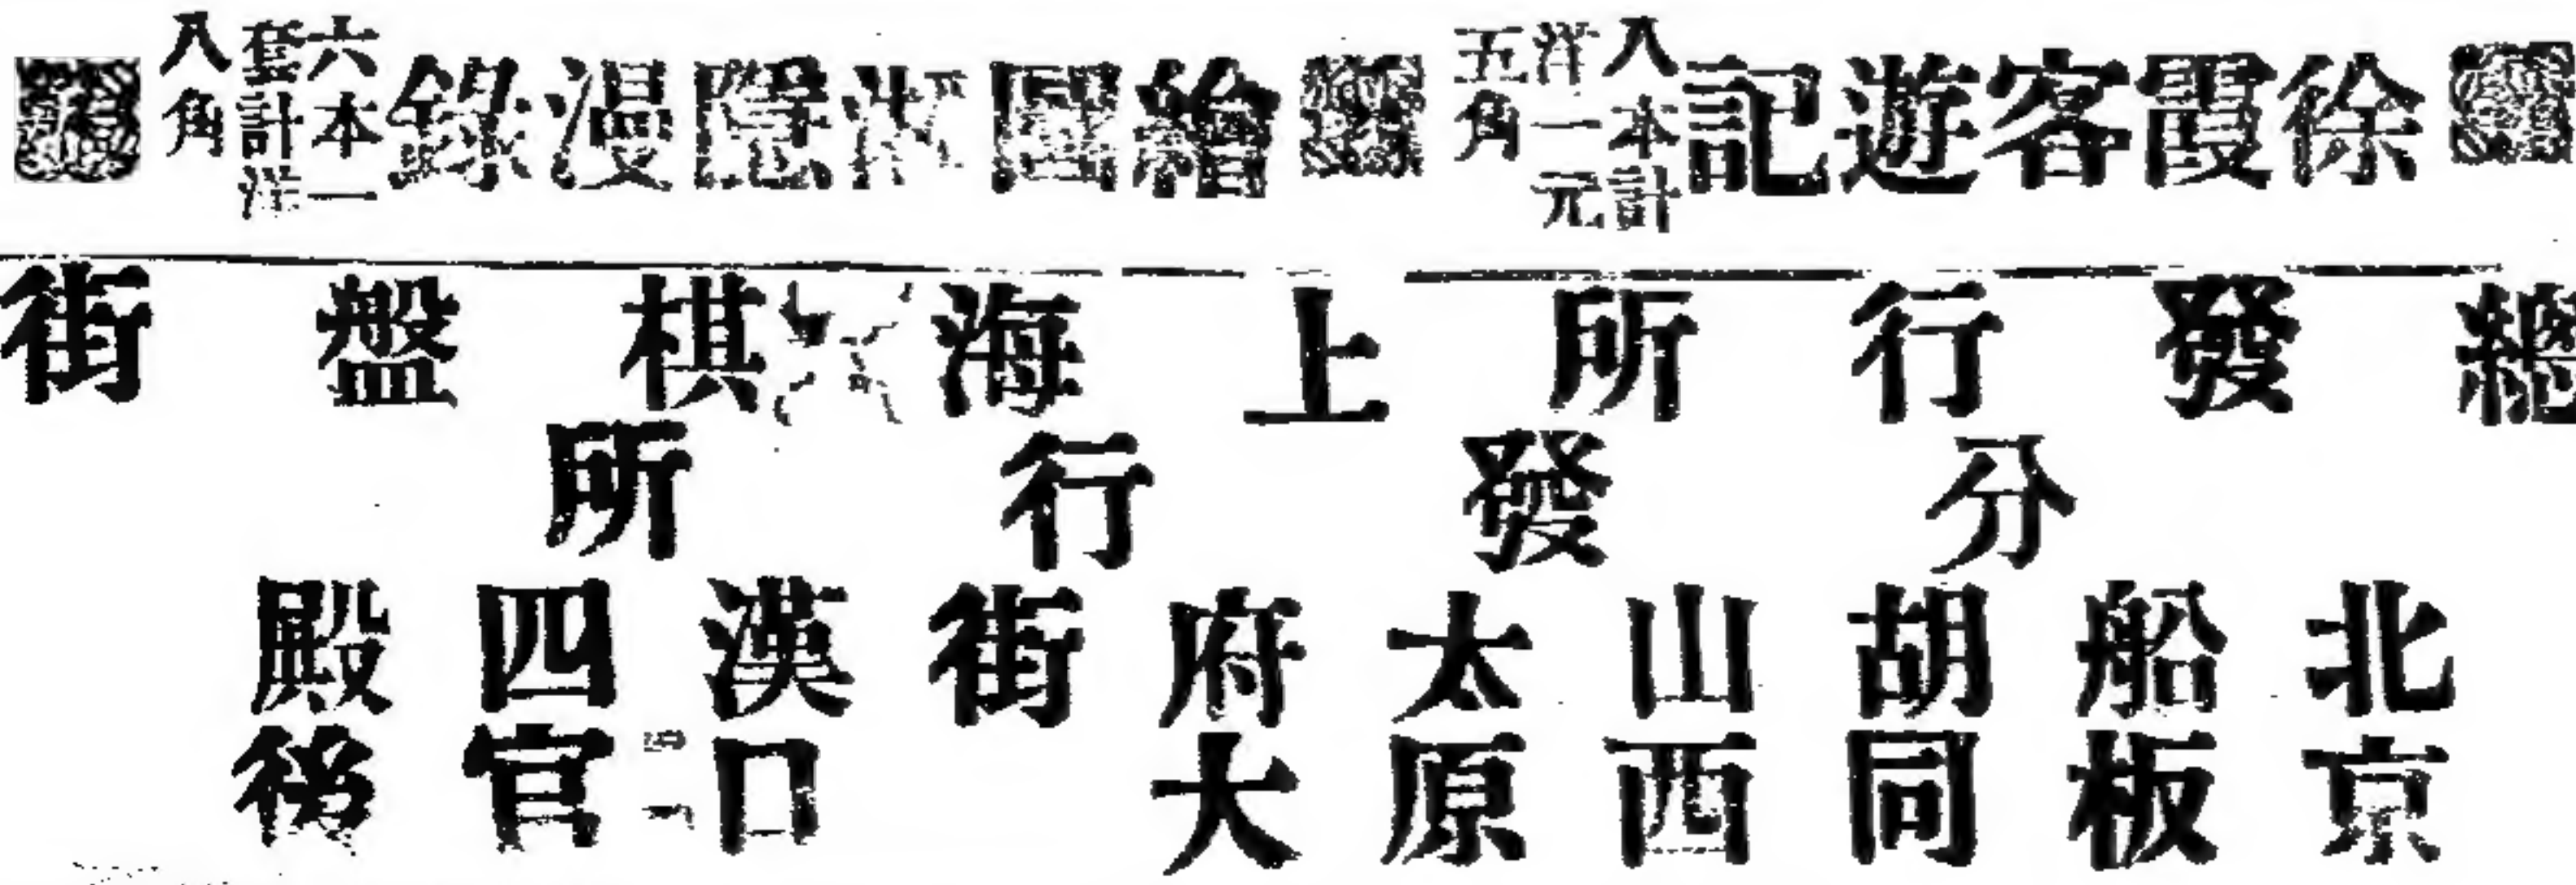 徐霞客遊記 八本計洋一元五角 繪圖淞隱漫錄 六本一套計洋八角
總發行所上海棋盤街
分發行所
北京船板胡同 山西太原府大街 漢口四官殿後